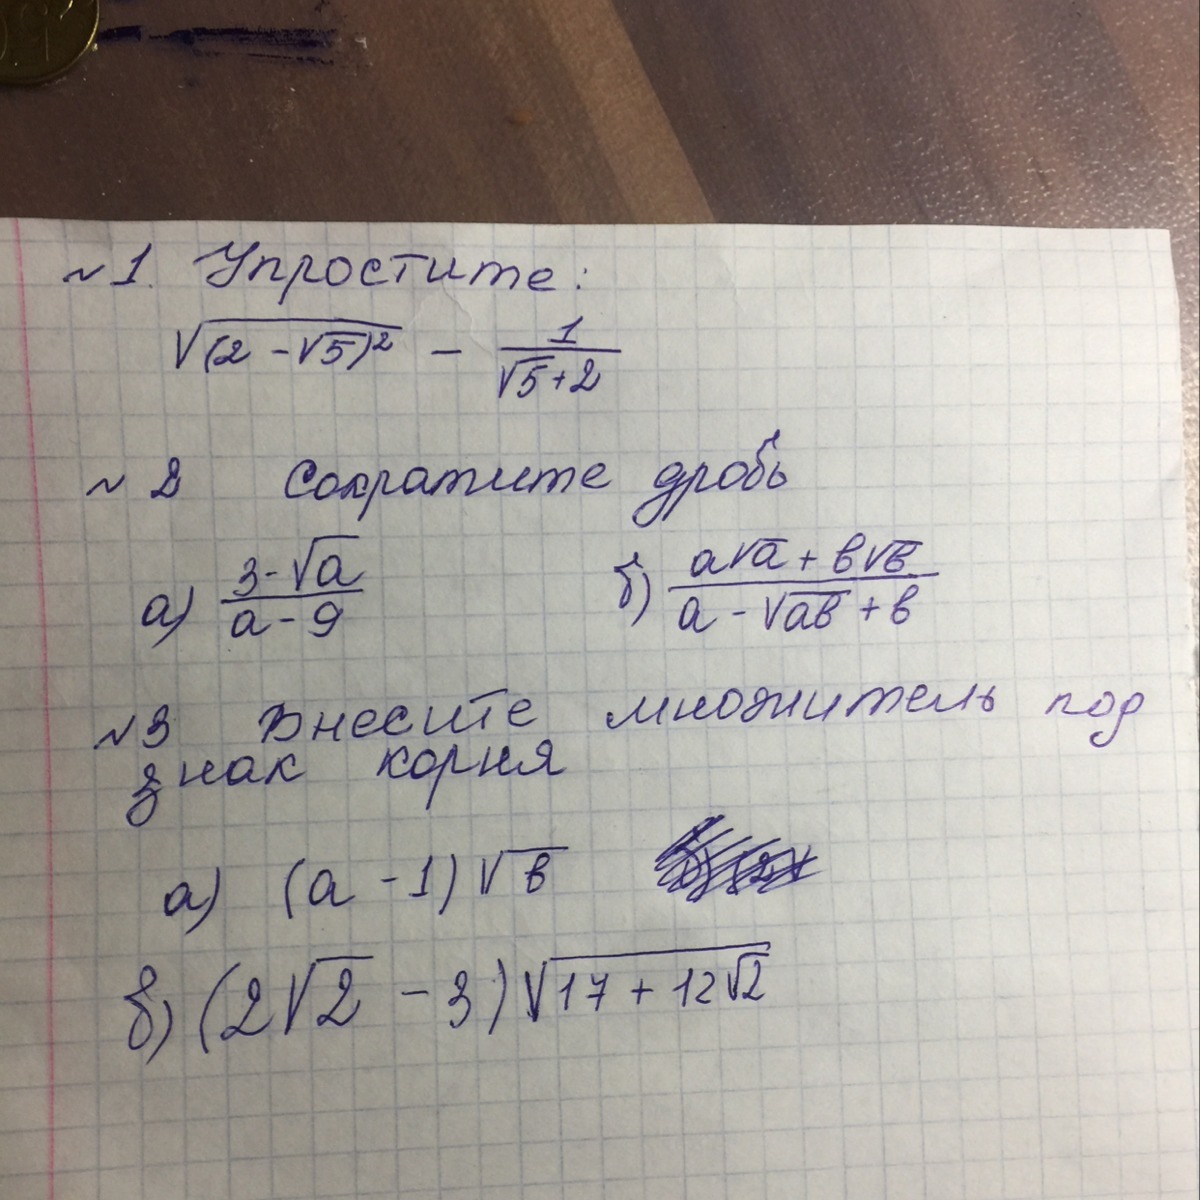 №1. Упростите:
√(2 - √5)² - 1/(√5 + 2)
№2 Сократите дробь
а) (3 - √a)/(a - 9) б) (a√a + b√b)/(a - √ab + b)
№3 Внесите множитель под
знак корня
а) (a - 1)√b
б) (2√2 - 3)√17 + 12√2